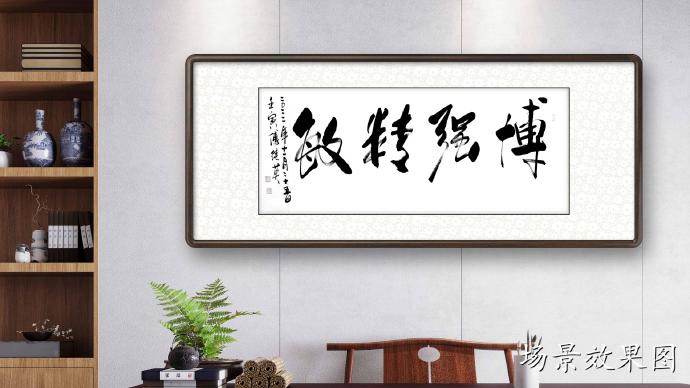 博强精敏
二〇二二年十二月二十五日
壬寅
场景效果图